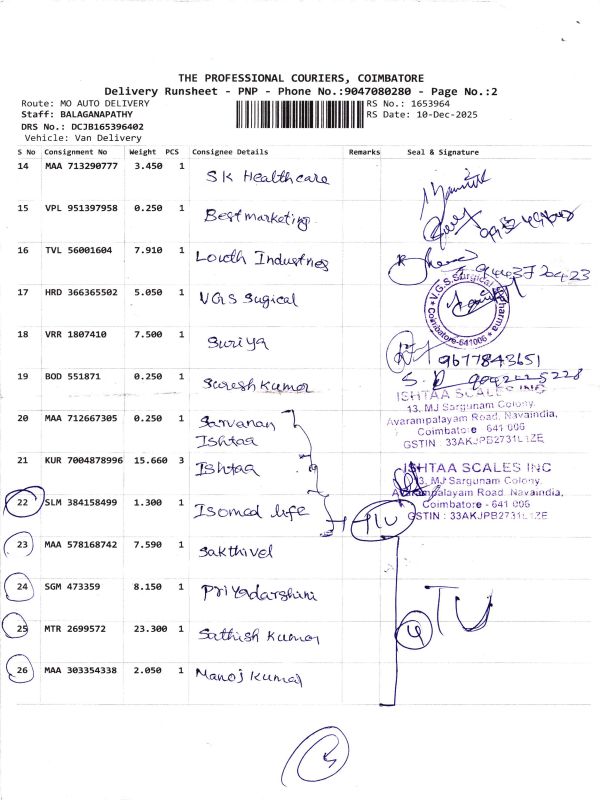 THE PROFESSIONAL COURIERS, COIMBATORE
Delivery Runsheet - PNP - Phone No.:9047080280 - Page No.:2
Route: MO AUTO DELIVERY
RS No.: 1653964
Staff: BALAGANAPATHY
RS Date: 10-Dec-2025
DRS No.: DCJB165396402
Vehicle: Van Delivery
S No Consignment No Weight PCS Consignee Details Remarks Seal & Signature
14 MAA 713290777 3.450 1 SK Healthcare
15 VPL 951397958 0.250 1 Bestmarketing
16 TVL 56001604 7.910 1 Louth Industries
9443720423
17 HRD 366365502 5.050 1 VGS Sugical
V.G.S. Surgical Pharma
Coimbatore-641006
18 VRR 1807410 7.500 1 Suriya
9677843651
19 BOD 551871 0.250 1 Suresh Kumar
ISHTAA SCALES INC
13, MJ Sargunam Colony,
Avarampalayam Road, Navaindia,
Coimbatore - 641 006
GSTIN : 33AKJPB2731L1ZE
20 MAA 712667305 0.250 1 Sarvanan
Ishtaa
21 KUR 7004878996 15.660 3 Ishtaa
ISHTAA SCALES INC
13, MJ Sargunam Colony,
Avarampalayam Road, Navaindia,
Coimbatore - 641 006
GSTIN : 33AKJPB2731L1ZE
22 SLM 384158499 1.300 1 Isomed life
TU
23 MAA 578168742 7.590 1 Sakthivel
24 SGM 473359 8.150 1 Priyadarshini
TU
25 MTR 2699572 23.300 1 Sathish Kumar
4
26 MAA 303354338 2.050 1 Manoj Kumar